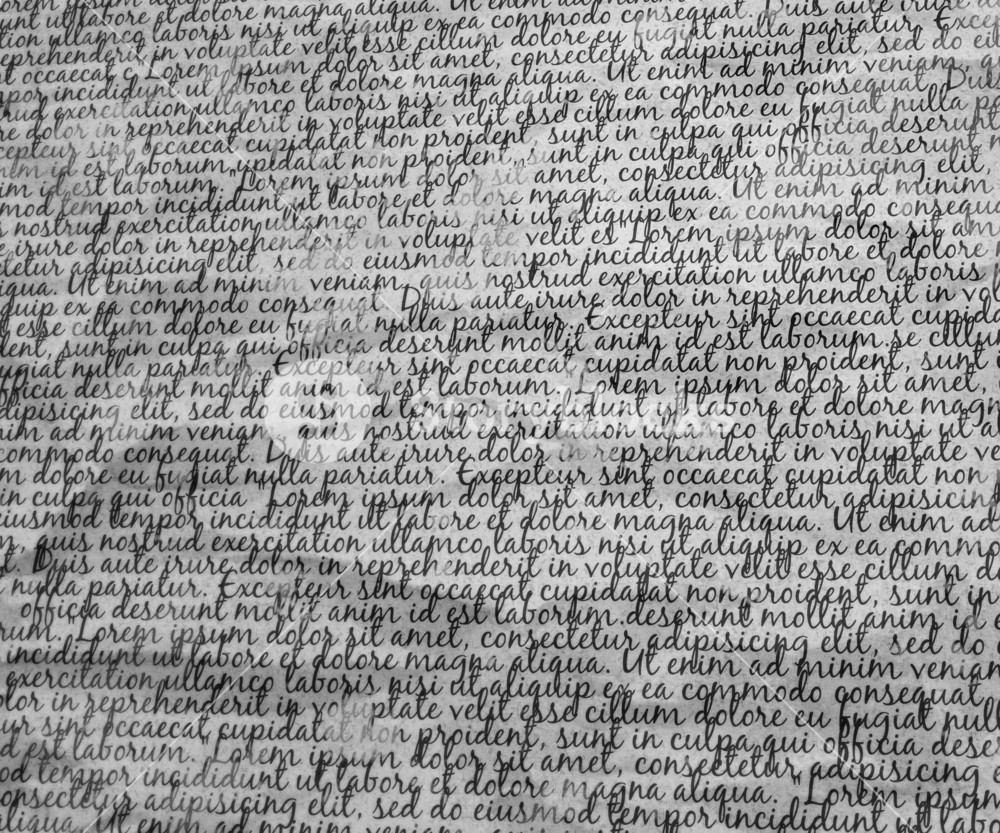 lorem ipsum dolor sit amet, consectetur adipisicing elit, sed do
ut labore et dolore magna aliqua. Ut enim ad minim
tion ullamco laboris nisi ut aliquip ex ea commodo consequat. Duis aute irure
eprehenderit in voluptate velit esse cillum dolore eu fugiat nulla pariatur. Excep
t occaecat c"Lorem ipsum dolor sit amet, consectetur adipisicing elit, sed do ei
por incididunt ut labore et dolore magna aliqua. Ut enim ad minim veniam, qu
rud exercitation ullamco laboris nisi ut aliquip ex ea commodo consequat. Duis
re dolor in reprehenderit in voluptate velit esse cillum dolore eu fugiat nulla pa
cepteur sint occaecat cupidatat non proident, sunt in culpa qui officia deserunt
nim id est laborum.upidatat non proident, sunt in culpa qui officia deserunt m
im id est laborum."Lorem ipsum dolor sit amet, consectetur adipisicing elit,
mod tempor incididunt ut labore et dolore magna aliqua. Ut enim ad minim
s nostrud exercitation ullamco laboris nisi ut aliquip ex ea commodo consequa
e irure dolor in reprehenderit in voluptate velit es"Lorem ipsum dolor sit am
tetur adipisicing elit, sed do eiusmod tempor incididunt ut labore et dolore
iqua. Ut enim ad minim veniam, quis nostrud exercitation ullamco laboris
quip ex ea commodo consequat. Duis aute irure dolor in reprehenderit in vol
t esse cillum dolore eu fugiat nulla pariatur. Excepteur sint occaecat cupidat
dent, sunt in culpa qui officia deserunt mollit anim id est laborum.se cillum
ugiat nulla pariatur. Excepteur sint occaecat cupidatat non proident, sunt
fficia deserunt mollit anim id est laborum. "Lorem ipsum dolor sit amet,
dipisicing elit, sed do eiusmod tempor incididunt ut labore et dolore magn
nim ad minim veniam, quis nostrud exercitation ullamco laboris nisi ut al
commodo consequat. Duis aute irure dolor in reprehenderit in voluptate ve
m dolore eu fugiat nulla pariatur. Excepteur sint occaecat cupidatat non
in culpa qui officia "Lorem ipsum dolor sit amet, consectetur adipisicing
eiusmod tempor incididunt ut labore et dolore magna aliqua. Ut enim ad
m, quis nostrud exercitation ullamco laboris nisi ut aliquip ex ea commo
t. Duis aute irure dolor in reprehenderit in voluptate velit esse cillum do
nulla pariatur. Excepteur sint occaecat cupidatat non proident, sunt in
officia deserunt mollit anim id est laborum.deserunt mollit anim id e
rum."Lorem ipsum dolor sit amet, consectetur adipisicing elit, sed do
incididunt ut labore et dolore magna aliqua. Ut enim ad minim veniam
exercitation ullamco laboris nisi ut aliquip ex ea commodo consequat
olor in reprehenderit in voluptate velit esse cillum dolore eu fugiat null
ur sint occaecat cupidatat non proident, sunt in culpa qui officia dese
d est laborum. "Lorem ipsum dolor sit amet, consectetur adipisicing
od tempor incididunt ut labore et dolore magna aliqua. "Lorem ipsum
onsectetur adipisicing elit, sed do eiusmod tempor incididunt ut lab
aliqua. Ut enim ad minim veniam, quis nostrud exercitation